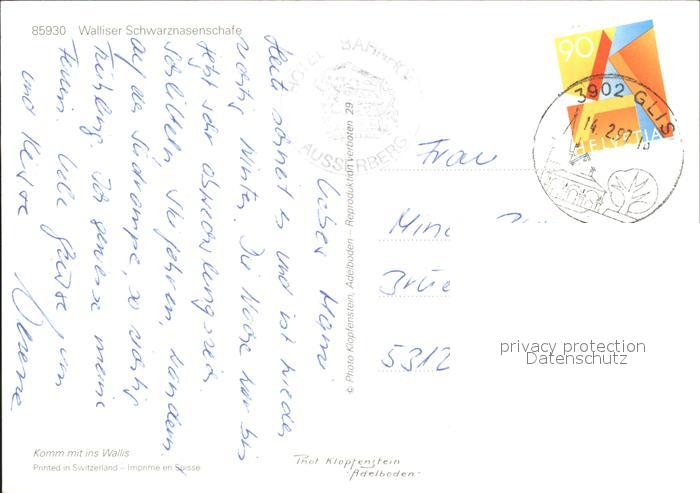 85930 Walliser Schwarznasenschafe
Liebes Mami.
Heut schneit es und ist wieder
richtig Winter. Die Woche hier bis
jetzt sehr abwechslungsreich.
Schlitteln, Ski fahren, wandern
auf der Südrampe, so richtig
Frühling. Ich geniesse meine
Ferien. Liebe Grüsse von
und
Komm mit ins Wallis
Printed in Switzerland – Imprimé en Suisse
© Photo Klopfenstein, Adelboden – Reproduktion verboten 29
Phot Klopfenstein
-Adelboden-
AUSSERBERG
90
HELVETIA
3902 GLIS
14. 2. 97
Frau
5312
privacy protection
Datenschutz